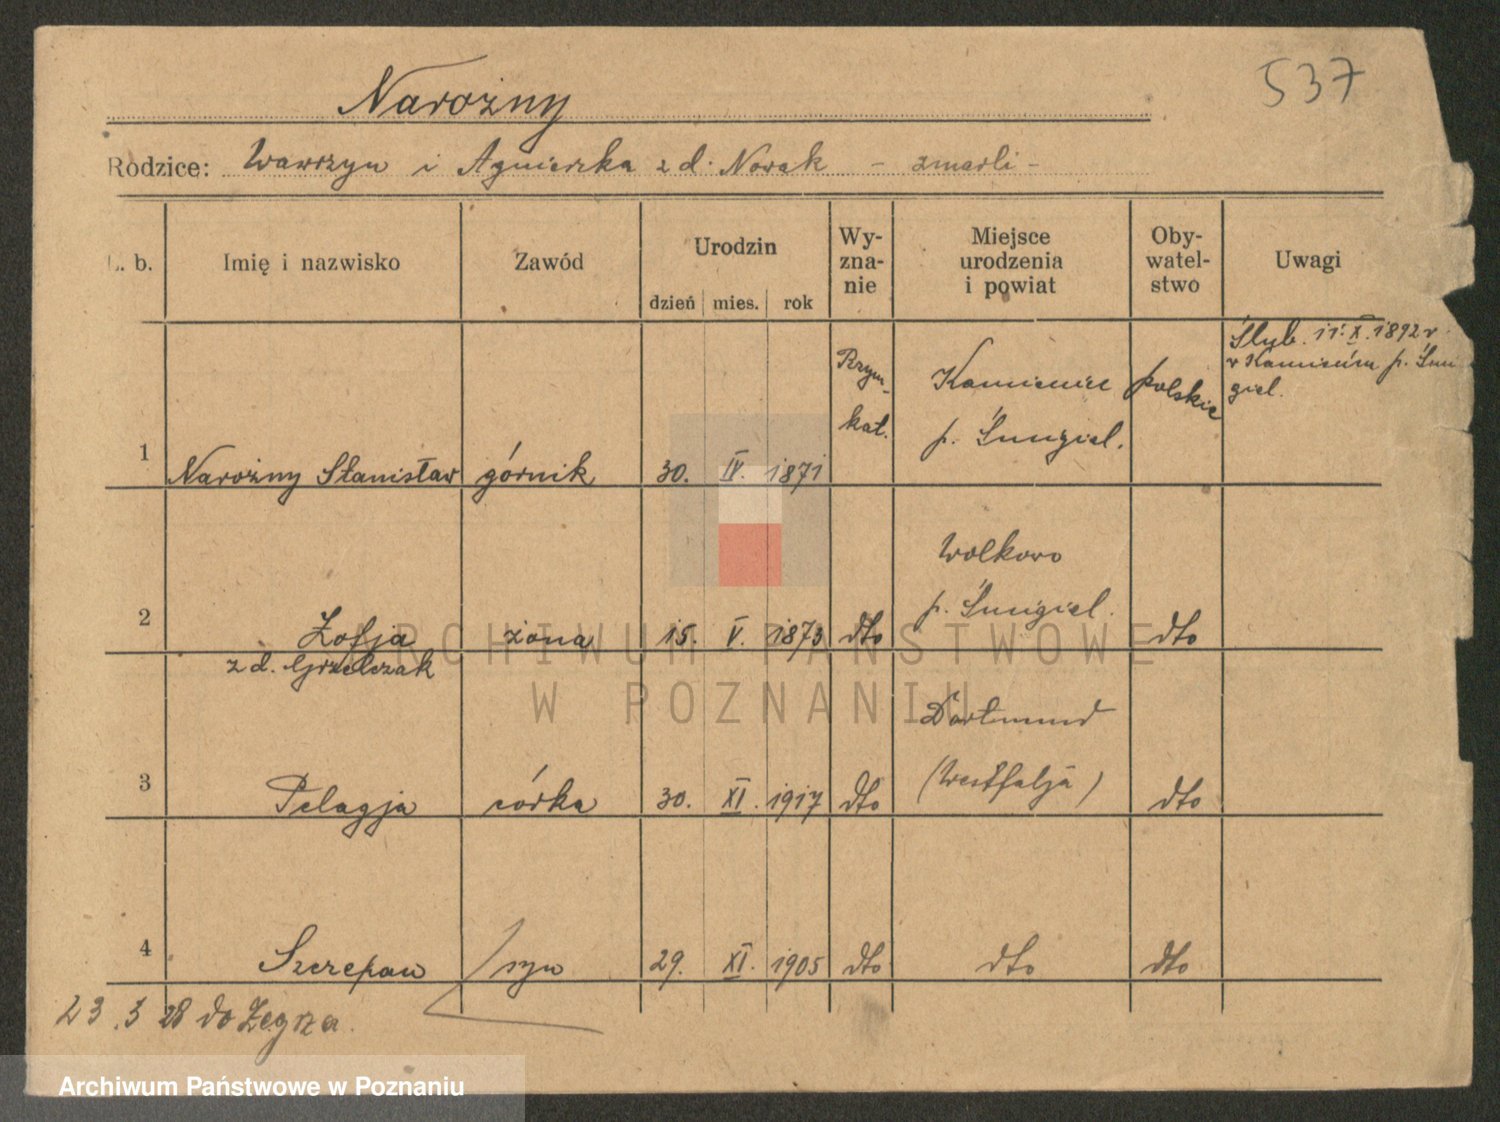 537
Narożny
Rodzice: Wawrzyn i Agnieszka z d. Nowak – zmarli –
L. b. Imię i nazwisko Zawód Urodzin Wy-zna-nie Miejsce urodzenia i powiat Oby-watel-stwo Uwagi
dzień mies. rok
Ślub. 11. X. 1892 r.
w Kamieńcu p. Śmi
giel.
Rzym-
kat.
Kamieniec
p. Śmigiel.
polskie
1 Narożny Stanisław górnik 30. IV. 1871
Wolkowo
p. Śmigiel.
2 Zofja żona 15. V. 1873 dto dto
z d. Grzelczak
Dortmund
(Westfalja)
3 Pelagja córka 30. XI. 1917 dto dto
4 Szczepan syn 29. XI. 1905 dto dto dto
23. 3 28 do Zegrza.
ARCHIWUM PAŃSTWOWE
W POZNANIU
Archiwum Państwowe w Poznaniu